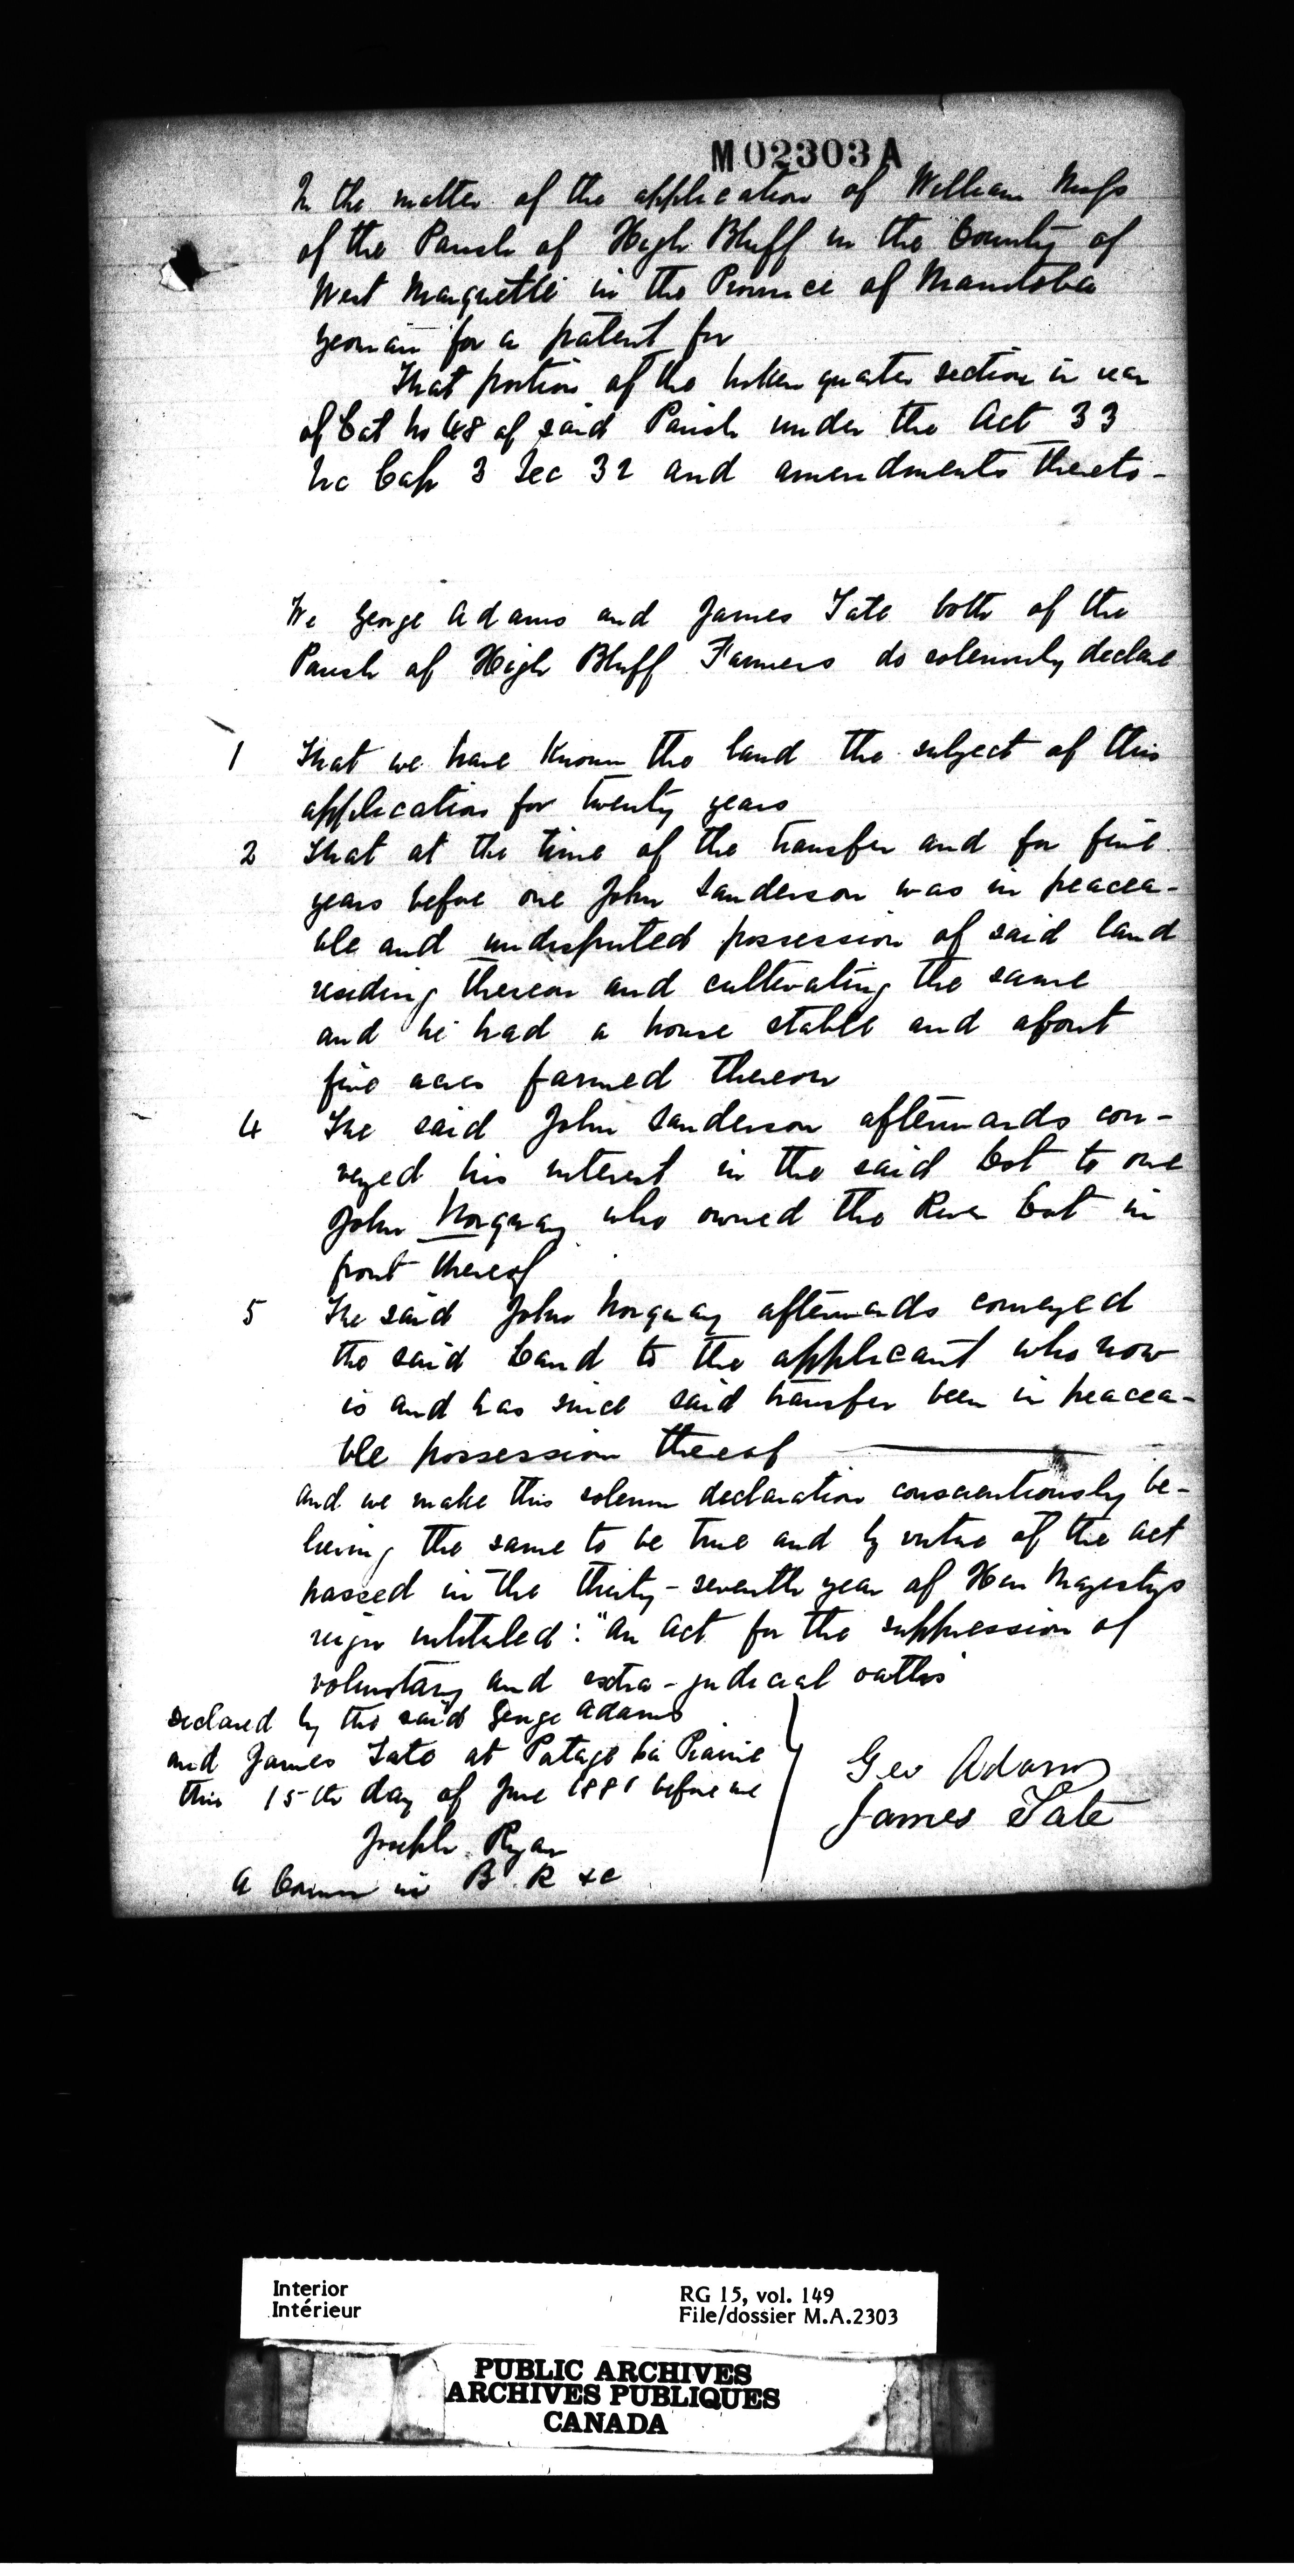 M02303A
In the matter of the application of William
of the Parish of High Bluff in the County of
West Marquette in the Province of Manitoba
yeoman for a patent for
That portion of the broken quarter section in rear
of Lot No 48 of said Parish under the Act 33
Vic Cap 3 Sec 32 and amendments thereto-
We George Adams and James Tate both of the
Parish of High Bluff Farmers do solemnly declare
1 That we have known the land the subject of this
application for twenty years
2 That at the time of the transfer and for five
years before one John Sanderson was in peacea-
ble and undisputed possession of said land
residing thereon and cultivating the same
and he had a house stable and about
five acres farmed thereon
4 The said John Sanderson afterwards con-
veyed his interest in the said Lot to one
John Norquay who owned the River Lot in
front thereof
5 The said John Norquay afterwards conveyed
the said Land to the applicant who now
is and has since said transfer been in peacea-
ble possession thereof
and we make this solemn declaration conscientiously be-
lieving the same to be true and by virtue of the act
passed in the thirty-seventh year of Her Majestys
reign intituled: "An act for the suppression of
voluntary and extra-judicial oaths"
Declared by the said George Adams
and James Tate at Portage La Prairie
this 15th day of June 1881 before me
Joseph Ryan
A Comm in B. R &c
Geo Adams
James Tate
Interior
Intérieur
RG 15, vol. 149
File/dossier M.A.2303
PUBLIC ARCHIVES
ARCHIVES PUBLIQUES
CANADA